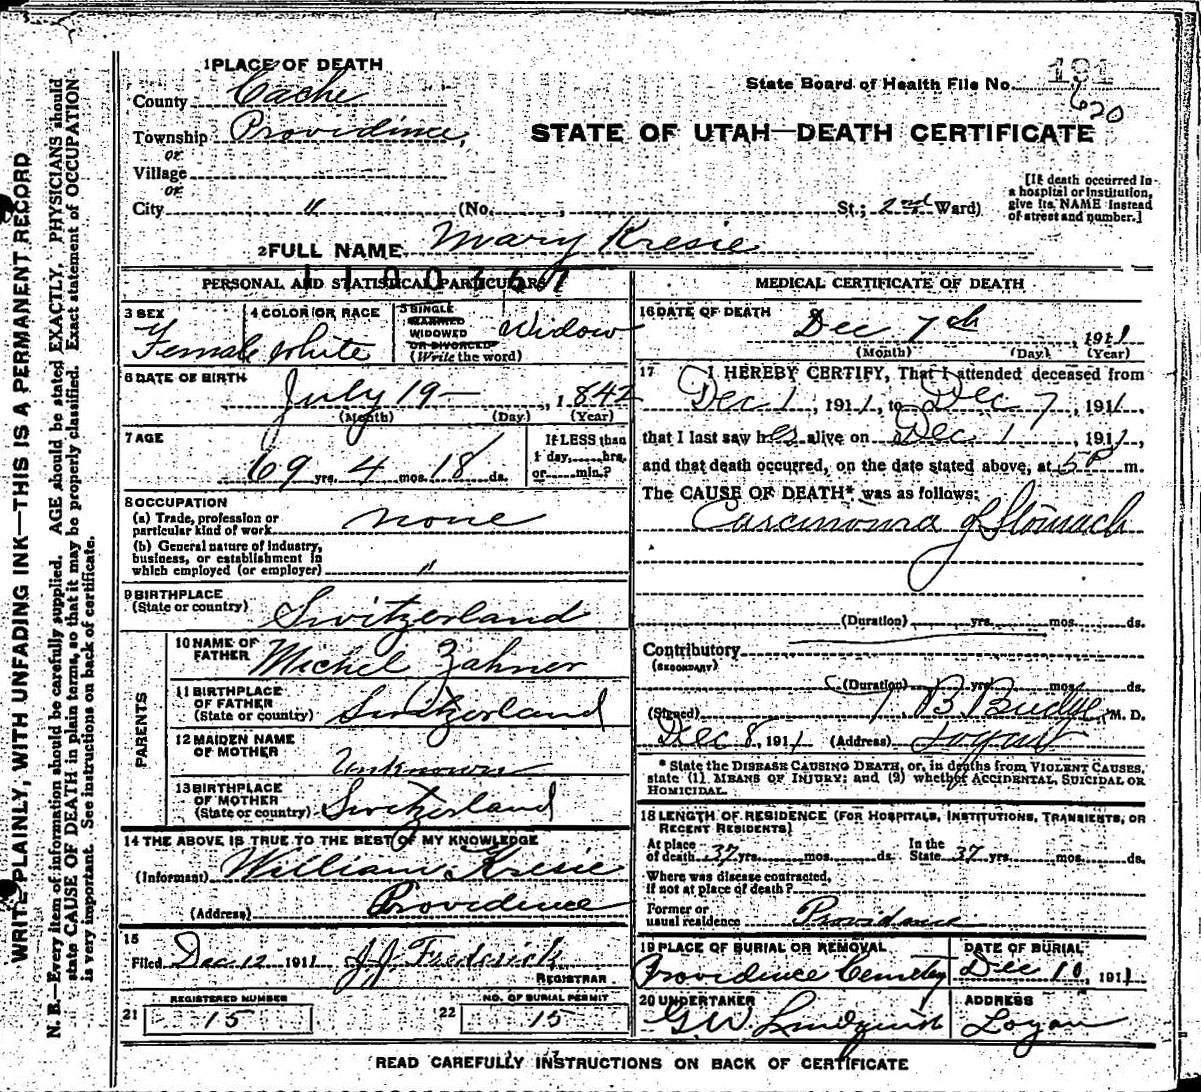 1 PLACE OF DEATH
County Cache
State Board of Health File No. 191
620
Township Providence,
or
Village
or
City " (No. ; St.; 2nd Ward)
STATE OF UTAH—DEATH CERTIFICATE
[If death occurred in a hospital or institution, give its NAME instead of street and number.]
2 FULL NAME Mary Kresie
1100367
PERSONAL AND STATISTICAL PARTICULARS
3 SEX
Female
4 COLOR OR RACE
White
5 SINGLE
MARRIED
WIDOWED
OR DIVORCED
(Write the word)
Widow
6 DATE OF BIRTH
July 19 — , 1842
(Month) (Day) (Year)
7 AGE
69 yrs. 4 mos. 18 ds.
If LESS than
1 day, hrs.
or min.?
8 OCCUPATION
(a) Trade, profession or
particular kind of work none
(b) General nature of industry,
business, or establishment in
which employed (or employer) "
9 BIRTHPLACE
(State or country) Switzerland
PARENTS
10 NAME OF
FATHER Michel Zahner
11 BIRTHPLACE
OF FATHER
(State or country) Switzerland
12 MAIDEN NAME
OF MOTHER
Unknown
13 BIRTHPLACE
OF MOTHER
(State or country) Switzerland
14 THE ABOVE IS TRUE TO THE BEST OF MY KNOWLEDGE
(Informant) William Kresie
(Address) Providence
15
Filed Dec 12 1911 J J Frederick
REGISTRAR
REGISTERED NUMBER
21 15
NO. OF BURIAL PERMIT
22 15
MEDICAL CERTIFICATE OF DEATH
16 DATE OF DEATH
Dec 7th , 1911
(Month) (Day) (Year)
17 I HEREBY CERTIFY, That I attended deceased from
Dec 1 , 1911, to Dec 7 , 1911,
that I last saw her alive on Dec. 1 , 1911,
and that death occurred, on the date stated above, at 5 P m.
The CAUSE OF DEATH* was as follows:
Carcinoma of Stomach
(Duration) yrs. mos. ds.
Contributory
(SECONDARY)
(Duration) yrs. mos. ds.
(Signed) B. Budge, M. D.
Dec 8, 1911 (Address) Logan
* State the DISEASE CAUSING DEATH, or, in deaths from VIOLENT CAUSES,
state (1) MEANS OF INJURY; and (2) whether ACCIDENTAL, SUICIDAL OR
HOMICIDAL.
18 LENGTH OF RESIDENCE (FOR HOSPITALS, INSTITUTIONS, TRANSIENTS, OR
RECENT RESIDENTS)
At place of death 37 yrs. mos. ds. In the State 37 yrs. mos. ds.
Where was disease contracted,
if not at place of death?
Former or
usual residence Providence
19 PLACE OF BURIAL OR REMOVAL
Providence Cemetery
DATE OF BURIAL
Dec 10 1911
20 UNDERTAKER
G W. Lindquist
ADDRESS
Logan
READ CAREFULLY INSTRUCTIONS ON BACK OF CERTIFICATE
WRITE PLAINLY, WITH UNFADING INK—THIS IS A PERMANENT RECORD
N. B.—Every item of information should be carefully supplied. AGE should be stated EXACTLY. PHYSICIANS should
state CAUSE OF DEATH in plain terms, so that it may be properly classified. Exact statement of OCCUPATION
is very important. See instructions on back of certificate.